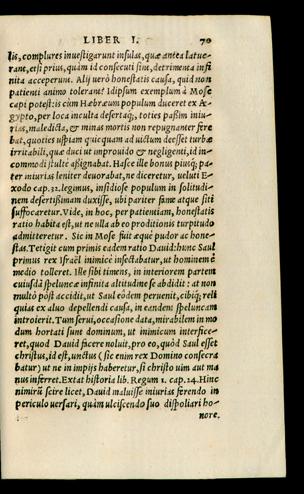 LIBER I. 70
lis, complures inuestigarunt insulas, quæ antea latue-
rant, etsi prius, quàm id consecuti sint, detrimenta infi
nita acceperunt. Alij uerò honestatis causa, quid non
patienti animo tolerant? Idipsum exemplum à Mose
capi potest: is cùm Hebræum populum duceret ex Æ-
gypto, per loca inculta desertaq́;, toties passim iniu-
rias, maledicta, & minas mortis non repugnanter fere
bat, quoties uspiam quicquam ad uictum deesset turbæ
irritabili, quæ duci ut improuido & negligenti, id in-
commodi stultè aßignabat. Hasce ille bonus piusq́; pa-
ter miurias leniter deuorabat, ne diceretur, ueluti E-
xodo cap. 32. legimus, insidiose populum in solitudi-
nem desertißimam duxisse, ubi pariter fame atque siti
suffocaretur. Vide, in hoc, per patientiam, honestatis
ratio habita est, ut ne ulla ab eo proditionis turpitudo
admitteretur. Sic in Mose fuit æquè pudor ac hone-
stas. Tetigit cum primis eadem ratio Dauid: hunc Saul
primus rex Israël inimicè insectabatur, ut hominem è
medio tolleret. Ille sibi timens, in interiorem partem
cuiusdā speluncæ infinita altitudine se abdidit: at non
multò pòst accidit, ut Saul eòdem peruenit, cibiq́; reli
quias ex aluo depellendi causa, in eandem speluncam
introierit. Tum serui, occasione data, mirabilem in mo
dum hortati sunt dominum, ut inimicum interfice-
ret, quod Dauid facere noluit, pro eo, quòd Saul esset
christus, id est, unctus (sic enim rex Domino consecra
batur) ut ne in impijs haberetur, si christo uim aut ma
nus inferret. Extat historia lib. Regum 1. cap. 24. Hinc
nimirū scire licet, Dauid maluisse iniurias ferendo in
periculo uersari, quàm ulciscendo suo dispoliari ho-
nore.